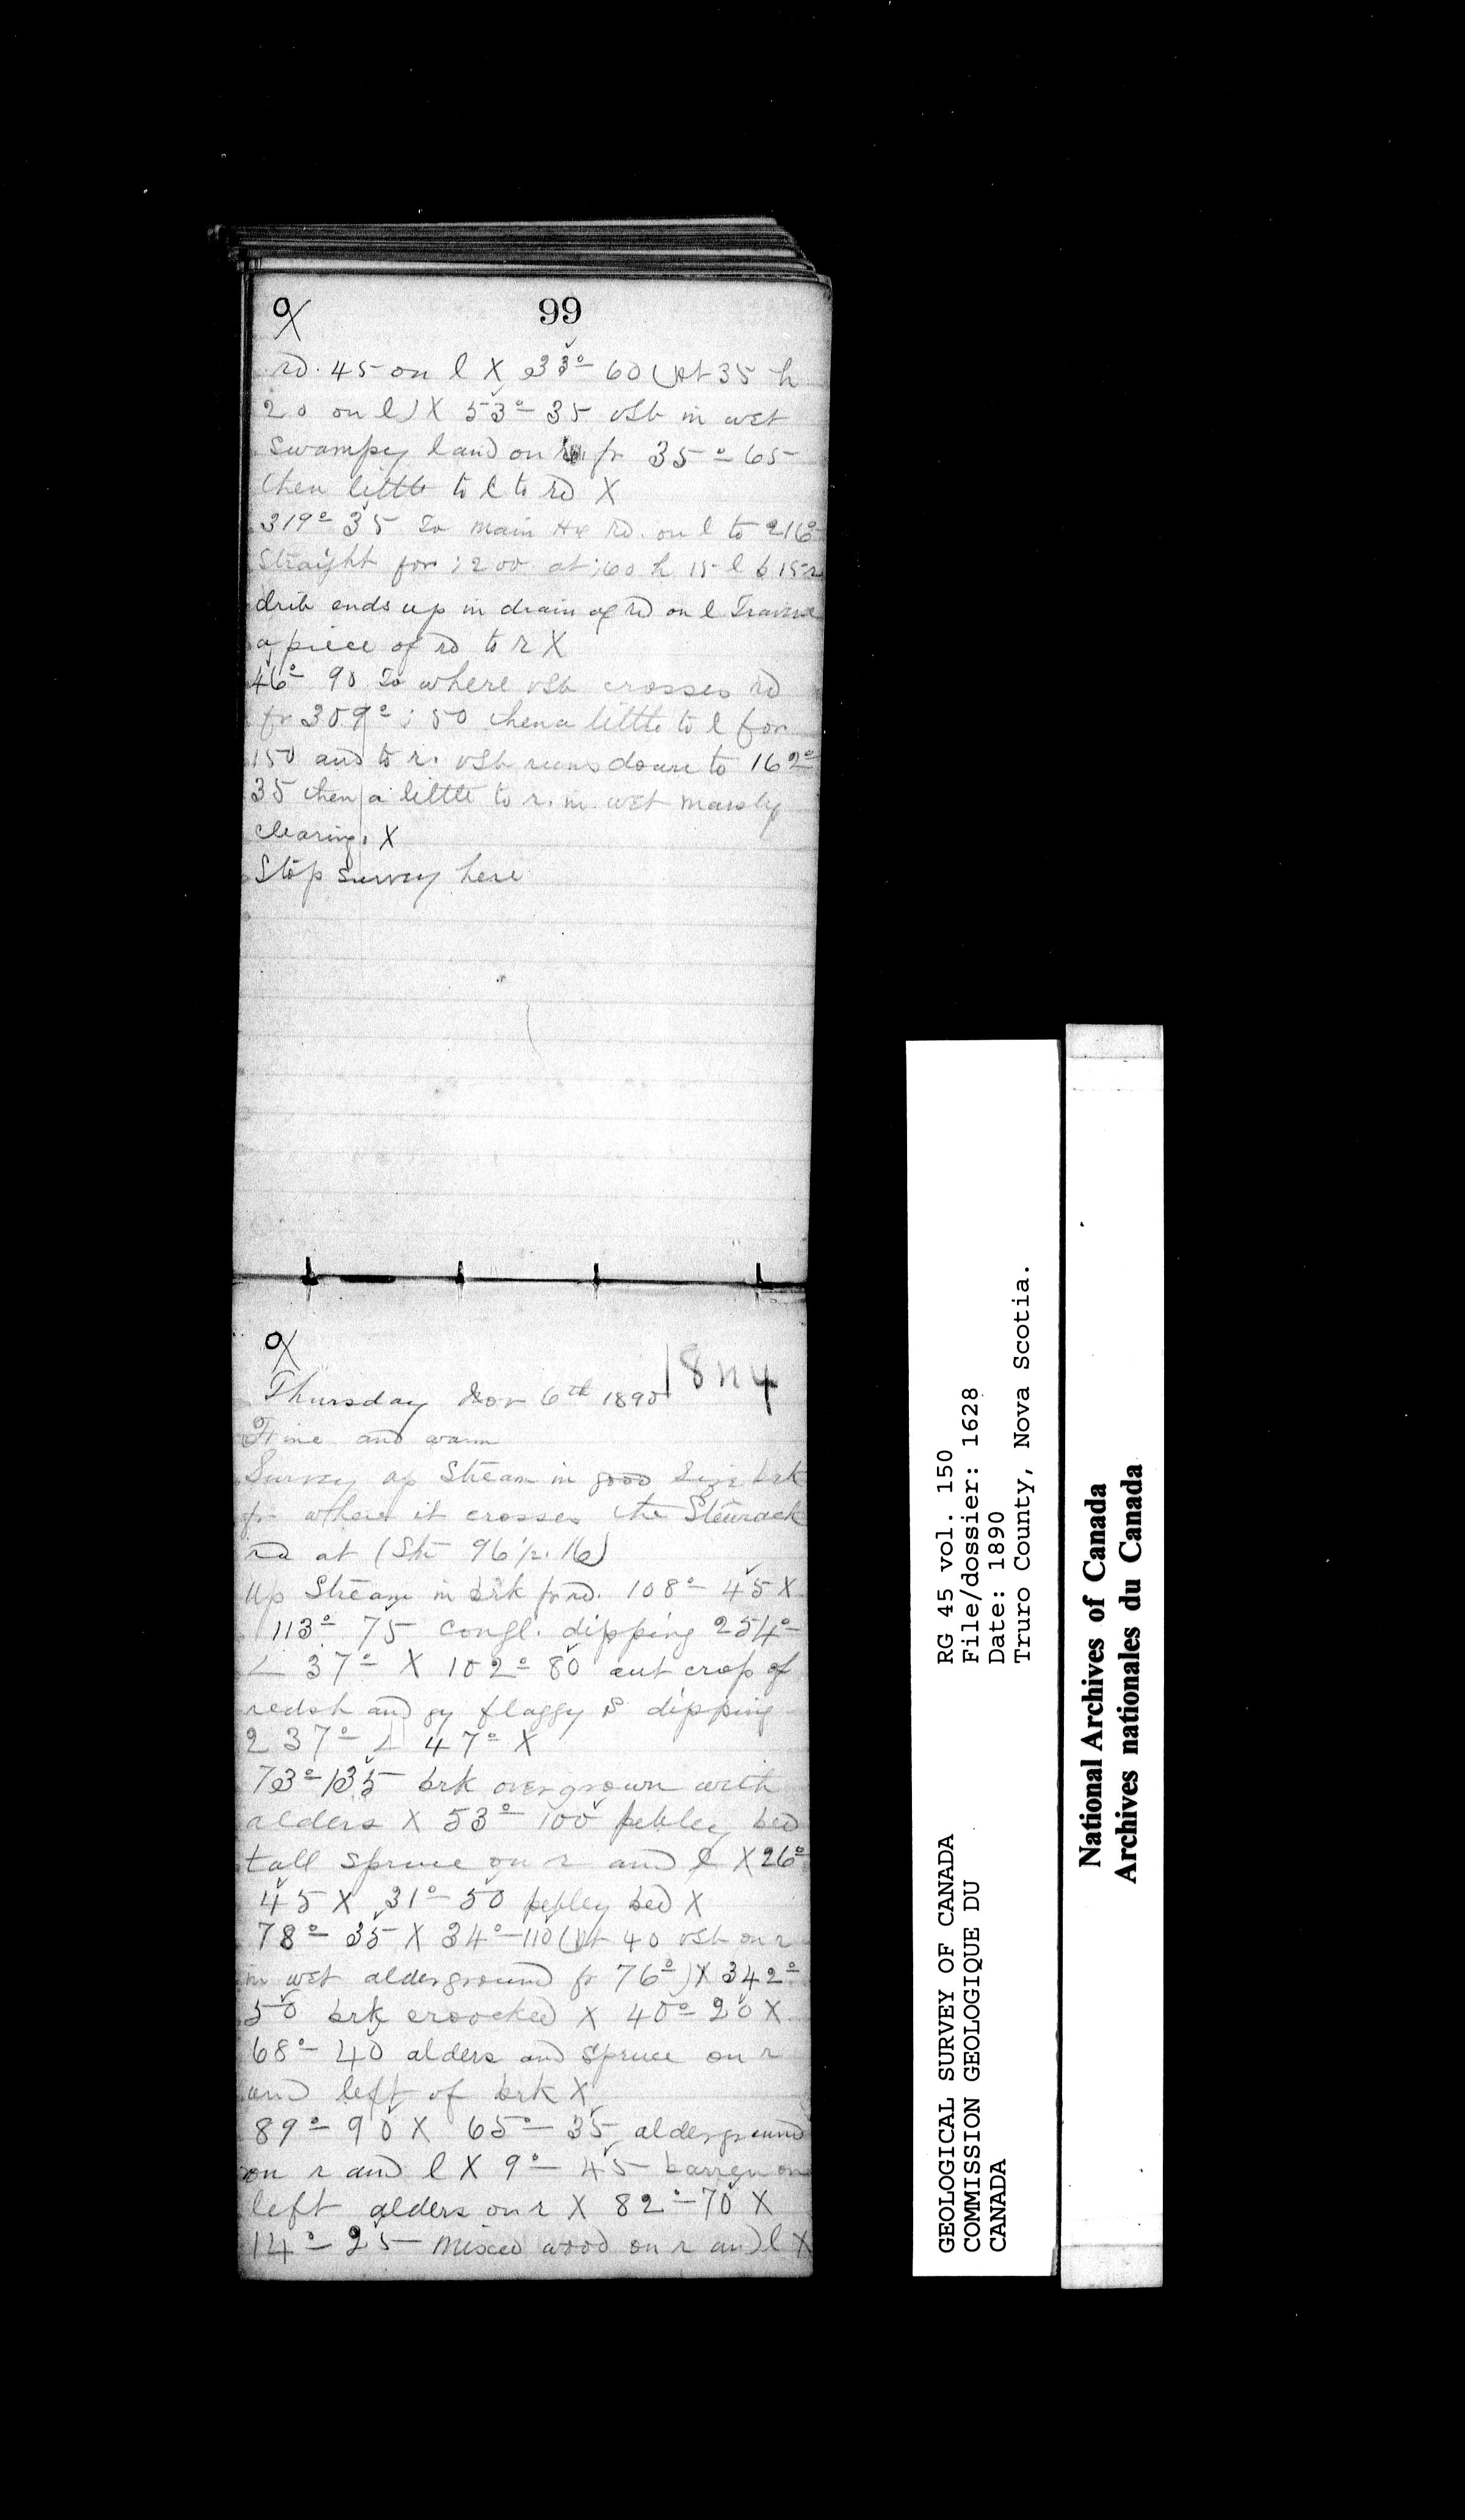 99
rd. 45 on l X 33° 60 (At 35 h
20 on l) X 53° 35 vsb in wet
swampy land on fr 35° 65
then little to l to rd X
319° 35 To main rd. on l to 216°
Straight for 200 at 60 h 15 l b 15 r
drib ends up in drain of rd on l Traverse
a piece of rd to r X
46° 90 To where vsb crosses rd
fr 309° 50 then a little to l for
150 and to r. vsb runs down to 162°
35 then a little to r. in wet marshy
clearing. X
Stop Survey here
Thursday Nov 6th 1890
Fine and warm
Survey up Stream in good size brk
fr where it crosses the
rd at (Stn 96 p. 16)
Up Stream in brk fr rd. 108° 45 X
113° 75 congl. dipping 254°
∠ 37° X 102° 80 out crop of
redsh and gy flaggy S dipping
237° ∠ 47° X
73° 135 brk overgrown with
alders X 53° 100 pebbley bed
tall Spruce on r and l X 26°
45 X 31° 50 pebbley bed X
78° 35 X 34° 110 (At 40 vsb on r
in wet alderground fr 76°) X 342°
50 brk crooked X 40° 20 X
68° 40 alders and Spruce on r
and left of brk X
89° 90 X 65° 35 alderground
on r and l X 9° 45 barren on
left alders on r X 82° 70 X
14° 25 mixed wood on r and l X
GEOLOGICAL SURVEY OF CANADA
COMMISSION GEOLOGIQUE DU
CANADA
RG 45 vol. 150
File/dossier: 1628
Date: 1890
Truro County, Nova Scotia.
National Archives of Canada
Archives nationales du Canada